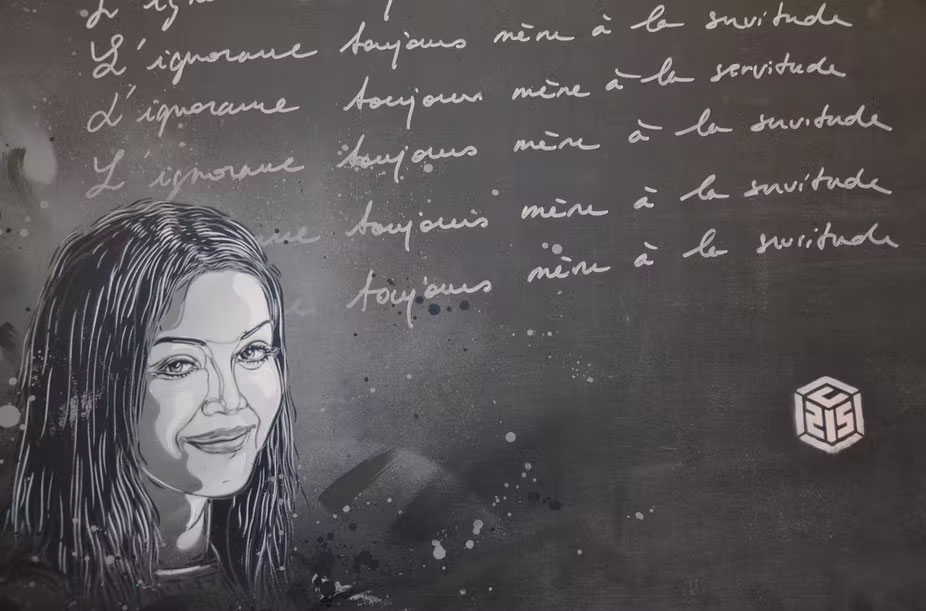 L'ignorance toujours mène à la servitude
L'ignorance toujours mène à la servitude
L'ignorance toujours mène à la servitude
toujours mène à la servitude
toujours mène à la servitude
C
215